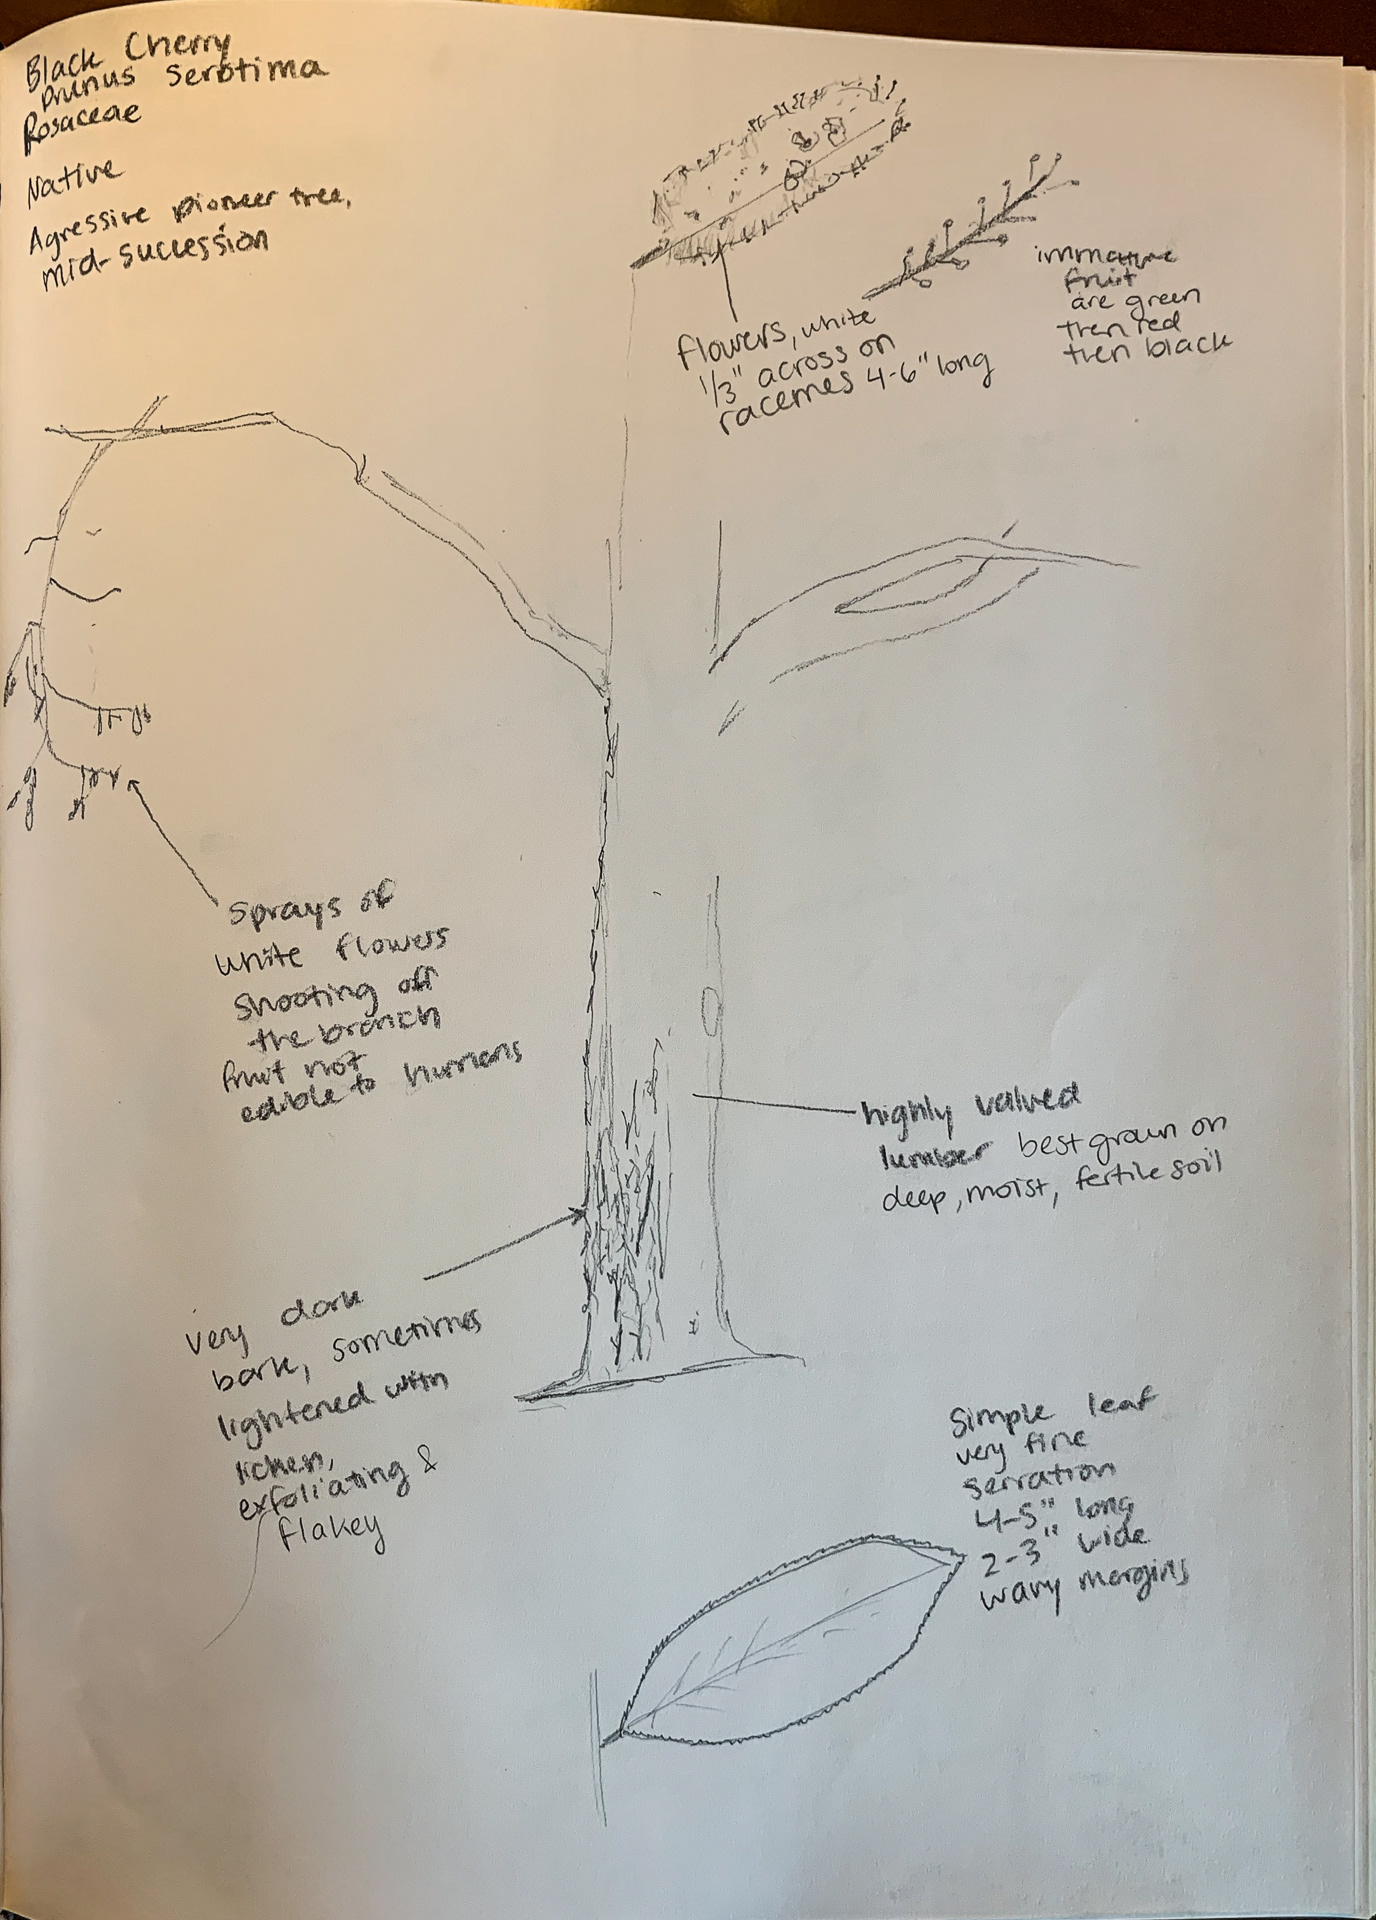 Black Cherry
Prunus Serotima
Rosaceae
Native
Agressive pioneer tree,
mid-succession
flowers, white
1/3" across on
racemes 4-6" long
immature
fruit
are green
then red
then black
Sprays of
white flowers
shooting off
the branch
fruit not
edible to humans
highly valued
lumber best grown on
deep, moist, fertile soil
very dark
bark, sometimes
lightened with
lichen,
exfoliating &
flakey
Simple leaf
very fine
serration
4-5" long
2-3" wide
wavy margins